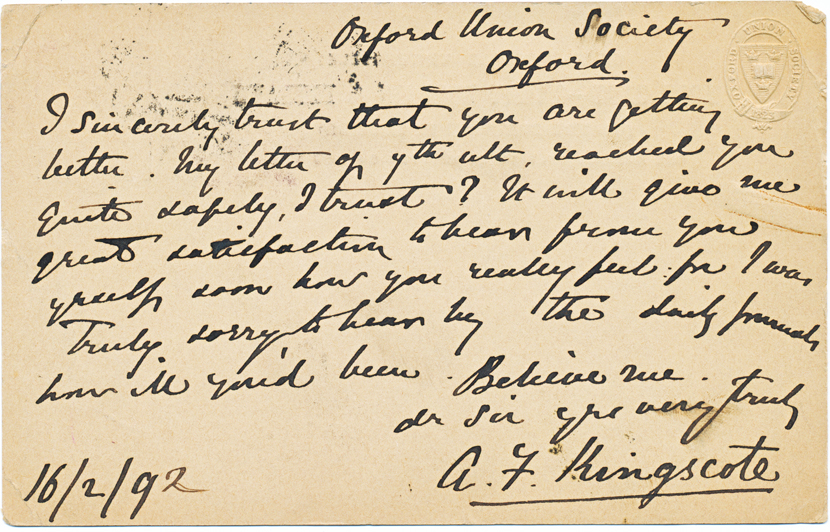 OXFORD UNION SOCIETY
Oxford Union Society
Oxford.
I sincerely trust that you are getting
better. My letter of ult. reached you
quite safely, I trust? It will give me
great satisfaction to hear from you
yrself soon how you really feel: for I was
truly sorry to hear by the daily journals
how ill you'd been. Believe me.
dr Sir yrs very truly
A. F. Kingscote
16/2/92